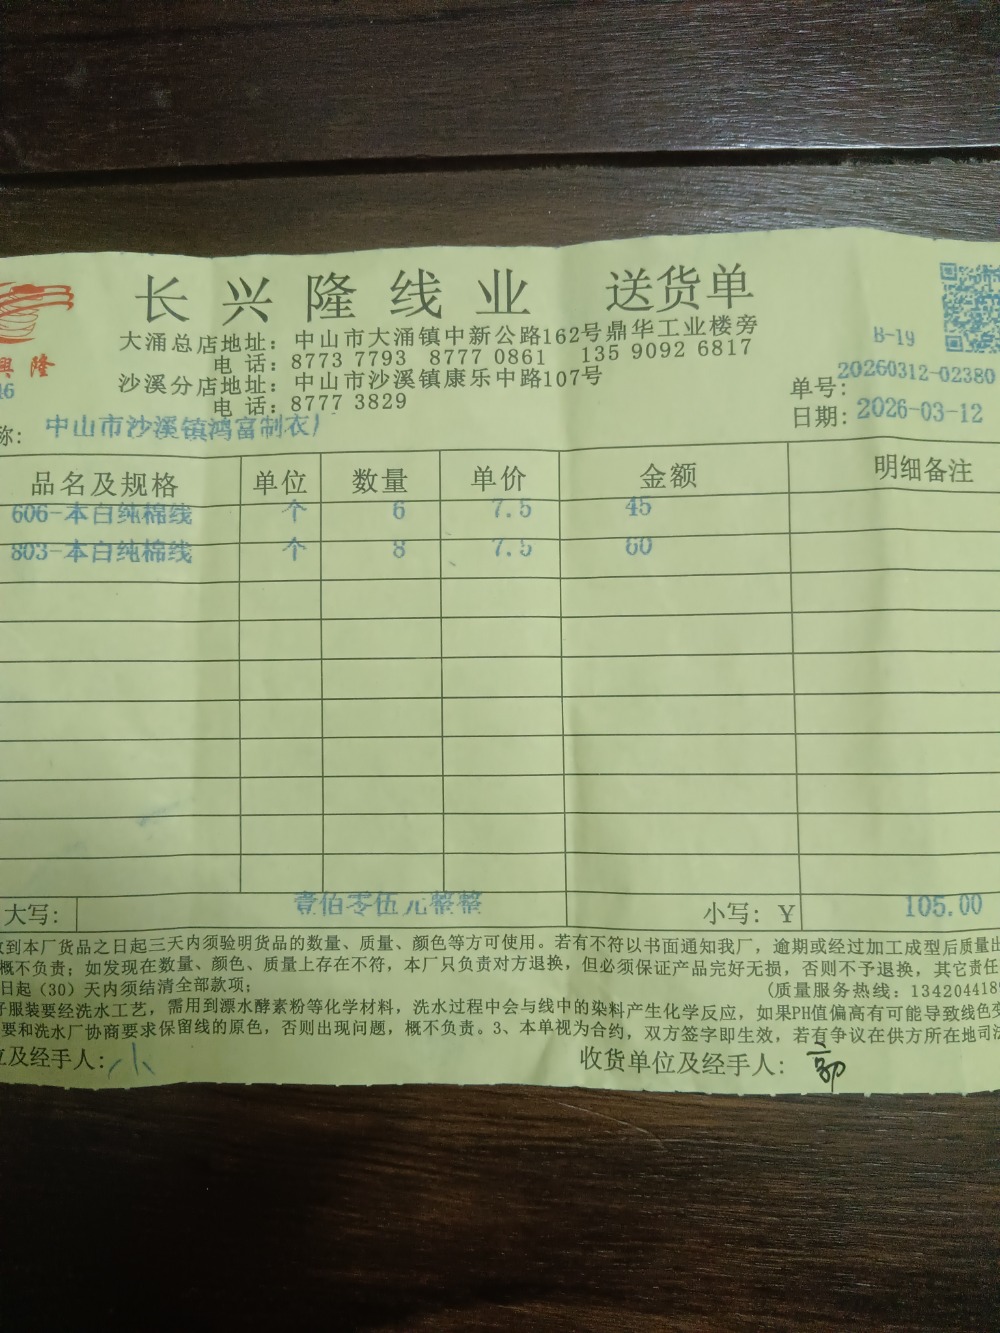 長兴隆线业 送货单
興隆
大涌总店地址：中山市大涌镇中新公路162号鼎华工业楼旁
电 话：8773 7793 8777 0861 135 9092 6817
沙溪分店地址：中山市沙溪镇康乐中路107号
电 话：8777 3829
B-19
单号：20260312-02380
日期：2026-03-12
称：中山市沙溪镇鸿富制衣厂
品名及规格 单位 数量 单价 金额 明细备注
606-本白纯棉线 个 6 7.5 45
803-本白纯棉线 个 8 7.5 60
大写：壹佰零伍元整整 小写：￥ 105.00
到本厂货品之日起三天内须验明货品的数量、质量、颜色等方可使用。若有不符以书面通知我厂，逾期或经过加工成型后质量出
概不负责；如发现在数量、颜色、质量上存在不符，本厂只负责对方退换，但必须保证产品完好无损，否则不予退换，其它责任
日起（30）天内须结清全部款项；
（质量服务热线：134204418
服装要经洗水工艺，需用到漂水酵素粉等化学材料，洗水过程中会与线中的染料产生化学反应，如果PH值偏高有可能导致线色变
要和洗水厂协商要求保留线的原色，否则出现问题，概不负责。3、本单视为合约，双方签字即生效，若有争议在供方所在地司法
及经手人：小 收货单位及经手人：